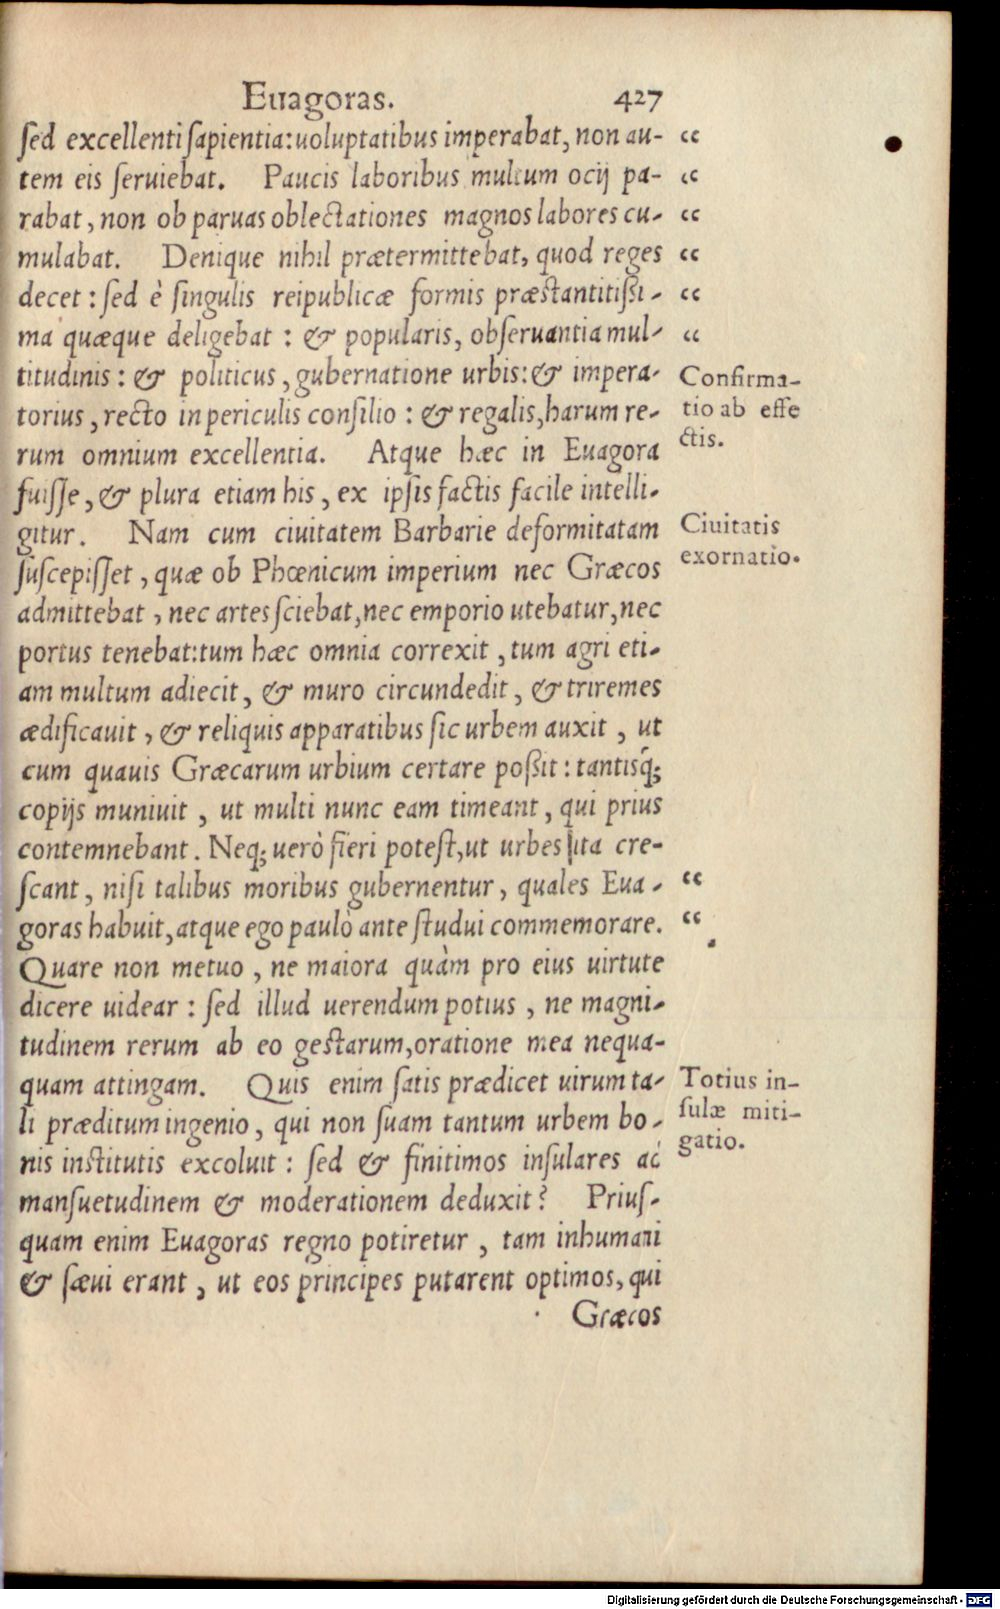 Euagoras. 427
sed excellenti sapientia: uoluptatibus imperabat, non au- “
tem eis seruiebat. Paucis laboribus multum ocij pa- “
rabat, non ob paruas oblectationes magnos labores cu- “
mulabat. Denique nihil prætermittebat, quod reges “
decet: sed è singulis reipublicæ formis præstantitißi- “
ma quæque deligebat: & popularis, obseruantia mul- “
titudinis: & politicus, gubernatione urbis: & impera-
torius, recto in periculis consilio: & regalis, harum re-
rum omnium excellentia. Atque hæc in Euagora
fuisse, & plura etiam his, ex ipsis factis facile intelli-
gitur. Nam cum ciuitatem Barbarie deformitatam
suscepisset, quæ ob Phœnicum imperium nec Græcos
admittebat, nec artes sciebat, nec emporio utebatur, nec
portus tenebat: tum hæc omnia correxit, tum agri eti-
am multum adiecit, & muro circundedit, & triremes
ædificauit, & reliquis apparatibus sic urbem auxit, ut
cum quauis Græcarum urbium certare poßit: tantisq́;
copijs muniuit, ut multi nunc eam timeant, qui prius
contemnebant. Neq; uerò fieri potest, ut urbes ita cre-
scant, nisi talibus moribus gubernentur, quales Eua- “
goras habuit, atque ego paulò ante studui commemorare. “
Quare non metuo, ne maiora quàm pro eius uirtute
dicere uidear: sed illud uerendum potius, ne magni-
tudinem rerum ab eo gestarum, oratione mea nequa-
quam attingam. Quis enim satis prædicet uirum ta-
li præditum ingenio, qui non suam tantum urbem bo-
nis institutis excoluit: sed & finitimos insulares ad
mansuetudinem & moderationem deduxit? Prius-
quam enim Euagoras regno potiretur, tam inhumani
& sæui erant, ut eos principes putarent optimos, qui
Græcos
Confirma-
tio ab effe
ctis.
Ciuitatis
exornatio.
Totius in-
sulæ miti-
gatio.
Digitalisierung gefördert durch die Deutsche Forschungsgemeinschaft - DFG